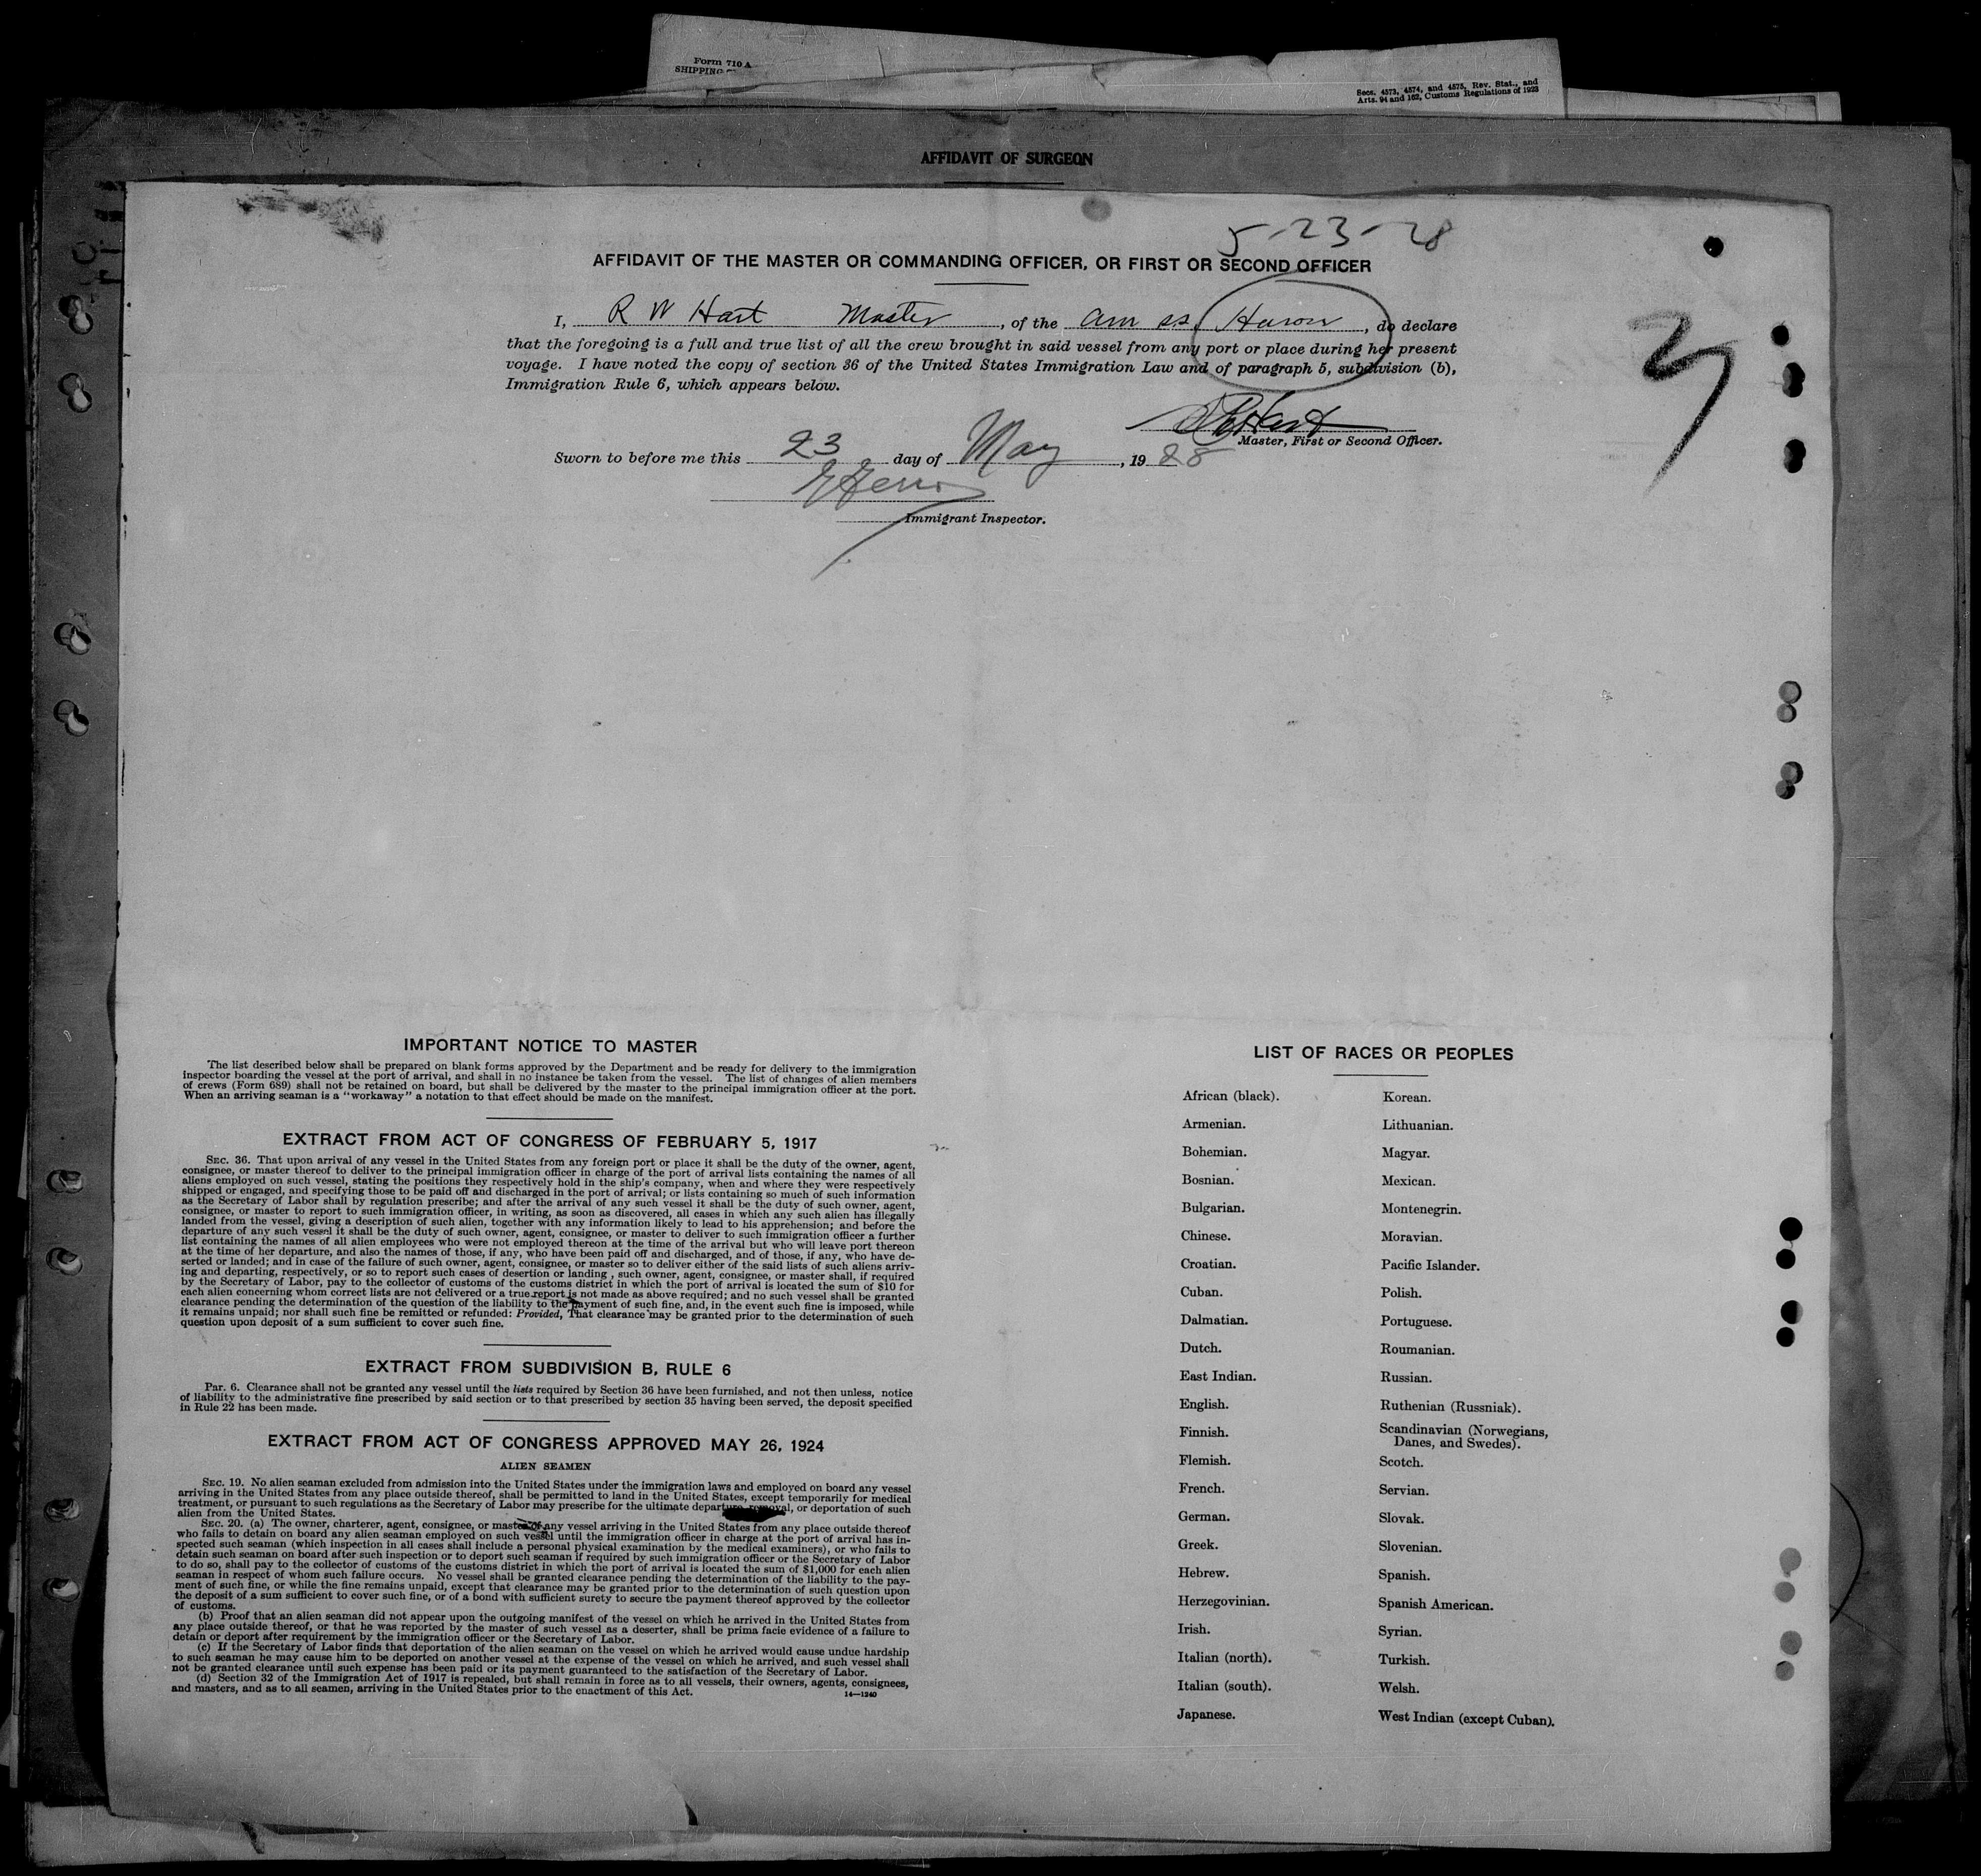 Form 710 A
SHIPPING
Secs. 4573, 4574, and 4575, Rev. Stat., and
Arts. 94 and 162, Customs Regulations of 1923
AFFIDAVIT OF SURGEON
5-23-28
AFFIDAVIT OF THE MASTER OR COMMANDING OFFICER, OR FIRST OR SECOND OFFICER
I, R W Hart Master, of the Am ss. Huron, do declare
that the foregoing is a full and true list of all the crew brought in said vessel from any port or place during her present
voyage. I have noted the copy of section 36 of the United States Immigration Law and of paragraph 5, subdivision (b),
Immigration Rule 6, which appears below.
R W Hart
Master, First or Second Officer.
Sworn to before me this 23 day of May, 1928
Immigrant Inspector.
IMPORTANT NOTICE TO MASTER
The list described below shall be prepared on blank forms approved by the Department and be ready for delivery to the immigration
inspector boarding the vessel at the port of arrival, and shall in no instance be taken from the vessel. The list of changes of alien members
of crews (Form 689) shall not be retained on board, but shall be delivered by the master to the principal immigration officer at the port.
When an arriving seaman is a "workaway" a notation to that effect should be made on the manifest.
EXTRACT FROM ACT OF CONGRESS OF FEBRUARY 5, 1917
SEC. 36. That upon arrival of any vessel in the United States from any foreign port or place it shall be the duty of the owner, agent,
consignee, or master thereof to deliver to the principal immigration officer in charge of the port of arrival lists containing the names of all
aliens employed on such vessel, stating the positions they respectively hold in the ship's company, when and where they were respectively
shipped or engaged, and specifying those to be paid off and discharged in the port of arrival; or lists containing so much of such information
as the Secretary of Labor shall by regulation prescribe; and after the arrival of any such vessel it shall be the duty of such owner, agent,
consignee, or master to report to such immigration officer, in writing, as soon as discovered, all cases in which any such alien has illegally
landed from the vessel, giving a description of such alien, together with any information likely to lead to his apprehension; and before the
departure of any such vessel it shall be the duty of such owner, agent, consignee, or master to deliver to such immigration officer a further
list containing the names of all alien employees who were not employed thereon at the time of the arrival but who will leave port thereon
at the time of her departure, and also the names of those, if any, who have been paid off and discharged, and of those, if any, who have de-
serted or landed; and in case of the failure of such owner, agent, consignee, or master so to deliver either of the said lists of such aliens arriv-
ing and departing, respectively, or so to report such cases of desertion or landing, such owner, agent, consignee, or master shall, if required
by the Secretary of Labor, pay to the collector of customs of the customs district in which the port of arrival is located the sum of $10 for
each alien concerning whom correct lists are not delivered or a true report is not made as above required; and no such vessel shall be granted
clearance pending the determination of the question of the liability to the payment of such fine, and, in the event such fine is imposed, while
it remains unpaid; nor shall such fine be remitted or refunded: Provided, That clearance may be granted prior to the determination of such
question upon deposit of a sum sufficient to cover such fine.
EXTRACT FROM SUBDIVISION B, RULE 6
Par. 6. Clearance shall not be granted any vessel until the lists required by Section 36 have been furnished, and not then unless, notice
of liability to the administrative fine prescribed by said section or to that prescribed by section 35 having been served, the deposit specified
in Rule 22 has been made.
EXTRACT FROM ACT OF CONGRESS APPROVED MAY 26, 1924
ALIEN SEAMEN
SEC. 19. No alien seaman excluded from admission into the United States under the immigration laws and employed on board any vessel
arriving in the United States from any place outside thereof, shall be permitted to land in the United States, except temporarily for medical
treatment, or pursuant to such regulations as the Secretary of Labor may prescribe for the ultimate departure, removal, or deportation of such
alien from the United States.
SEC. 20. (a) The owner, charterer, agent, consignee, or master of any vessel arriving in the United States from any place outside thereof
who fails to detain on board any alien seaman employed on such vessel until the immigration officer in charge at the port of arrival has in-
spected such seaman (which inspection in all cases shall include a personal physical examination by the medical examiners), or who fails to
detain such seaman on board after such inspection or to deport such seaman if required by such immigration officer or the Secretary of Labor
to do so, shall pay to the collector of customs of the customs district in which the port of arrival is located the sum of $1,000 for each alien
seaman in respect of whom such failure occurs. No vessel shall be granted clearance pending the determination of the liability to the pay-
ment of such fine, or while the fine remains unpaid, except that clearance may be granted prior to the determination of such question upon
the deposit of a sum sufficient to cover such fine, or of a bond with sufficient surety to secure the payment thereof approved by the collector
of customs.
(b) Proof that an alien seaman did not appear upon the outgoing manifest of the vessel on which he arrived in the United States from
any place outside thereof, or that he was reported by the master of such vessel as a deserter, shall be prima facie evidence of a failure to
detain or deport after requirement by the immigration officer or the Secretary of Labor.
(c) If the Secretary of Labor finds that deportation of the alien seaman on the vessel on which he arrived would cause undue hardship
to such seaman he may cause him to be deported on another vessel at the expense of the vessel on which he arrived, and such vessel shall
not be granted clearance until such expense has been paid or its payment guaranteed to the satisfaction of the Secretary of Labor.
(d) Section 32 of the Immigration Act of 1917 is repealed, but shall remain in force as to all vessels, their owners, agents, consignees,
and masters, and as to all seamen, arriving in the United States prior to the enactment of this Act.
14—1240
LIST OF RACES OR PEOPLES
African (black).
Armenian.
Bohemian.
Bosnian.
Bulgarian.
Chinese.
Croatian.
Cuban.
Dalmatian.
Dutch.
East Indian.
English.
Finnish.
Flemish.
French.
German.
Greek.
Hebrew.
Herzegovinian.
Irish.
Italian (north).
Italian (south).
Japanese.
Korean.
Lithuanian.
Magyar.
Mexican.
Montenegrin.
Moravian.
Pacific Islander.
Polish.
Portuguese.
Roumanian.
Russian.
Ruthenian (Russniak).
Scandinavian (Norwegians,
Danes, and Swedes).
Scotch.
Servian.
Slovak.
Slovenian.
Spanish.
Spanish American.
Syrian.
Turkish.
Welsh.
West Indian (except Cuban).